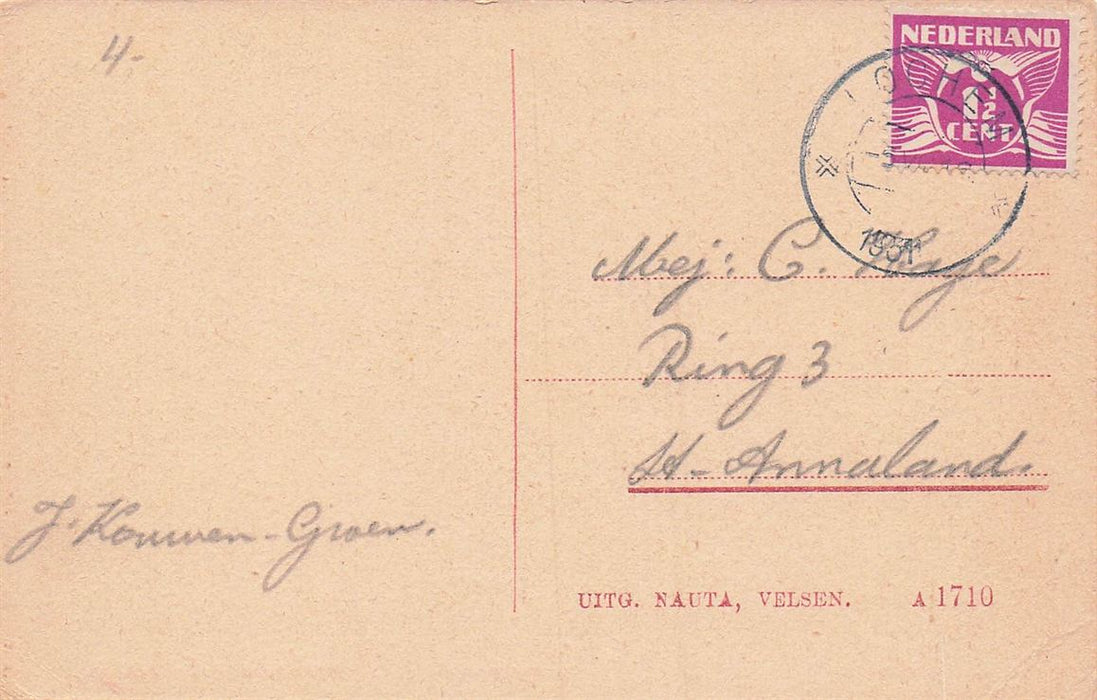 4-
NEDERLAND
1½
CENT
LOCHEM
1931
Mej: C. Hage
Ring 3
St-Annaland.
J. Kouwen-Groen.
UITG. NAUTA, VELSEN. A 1710